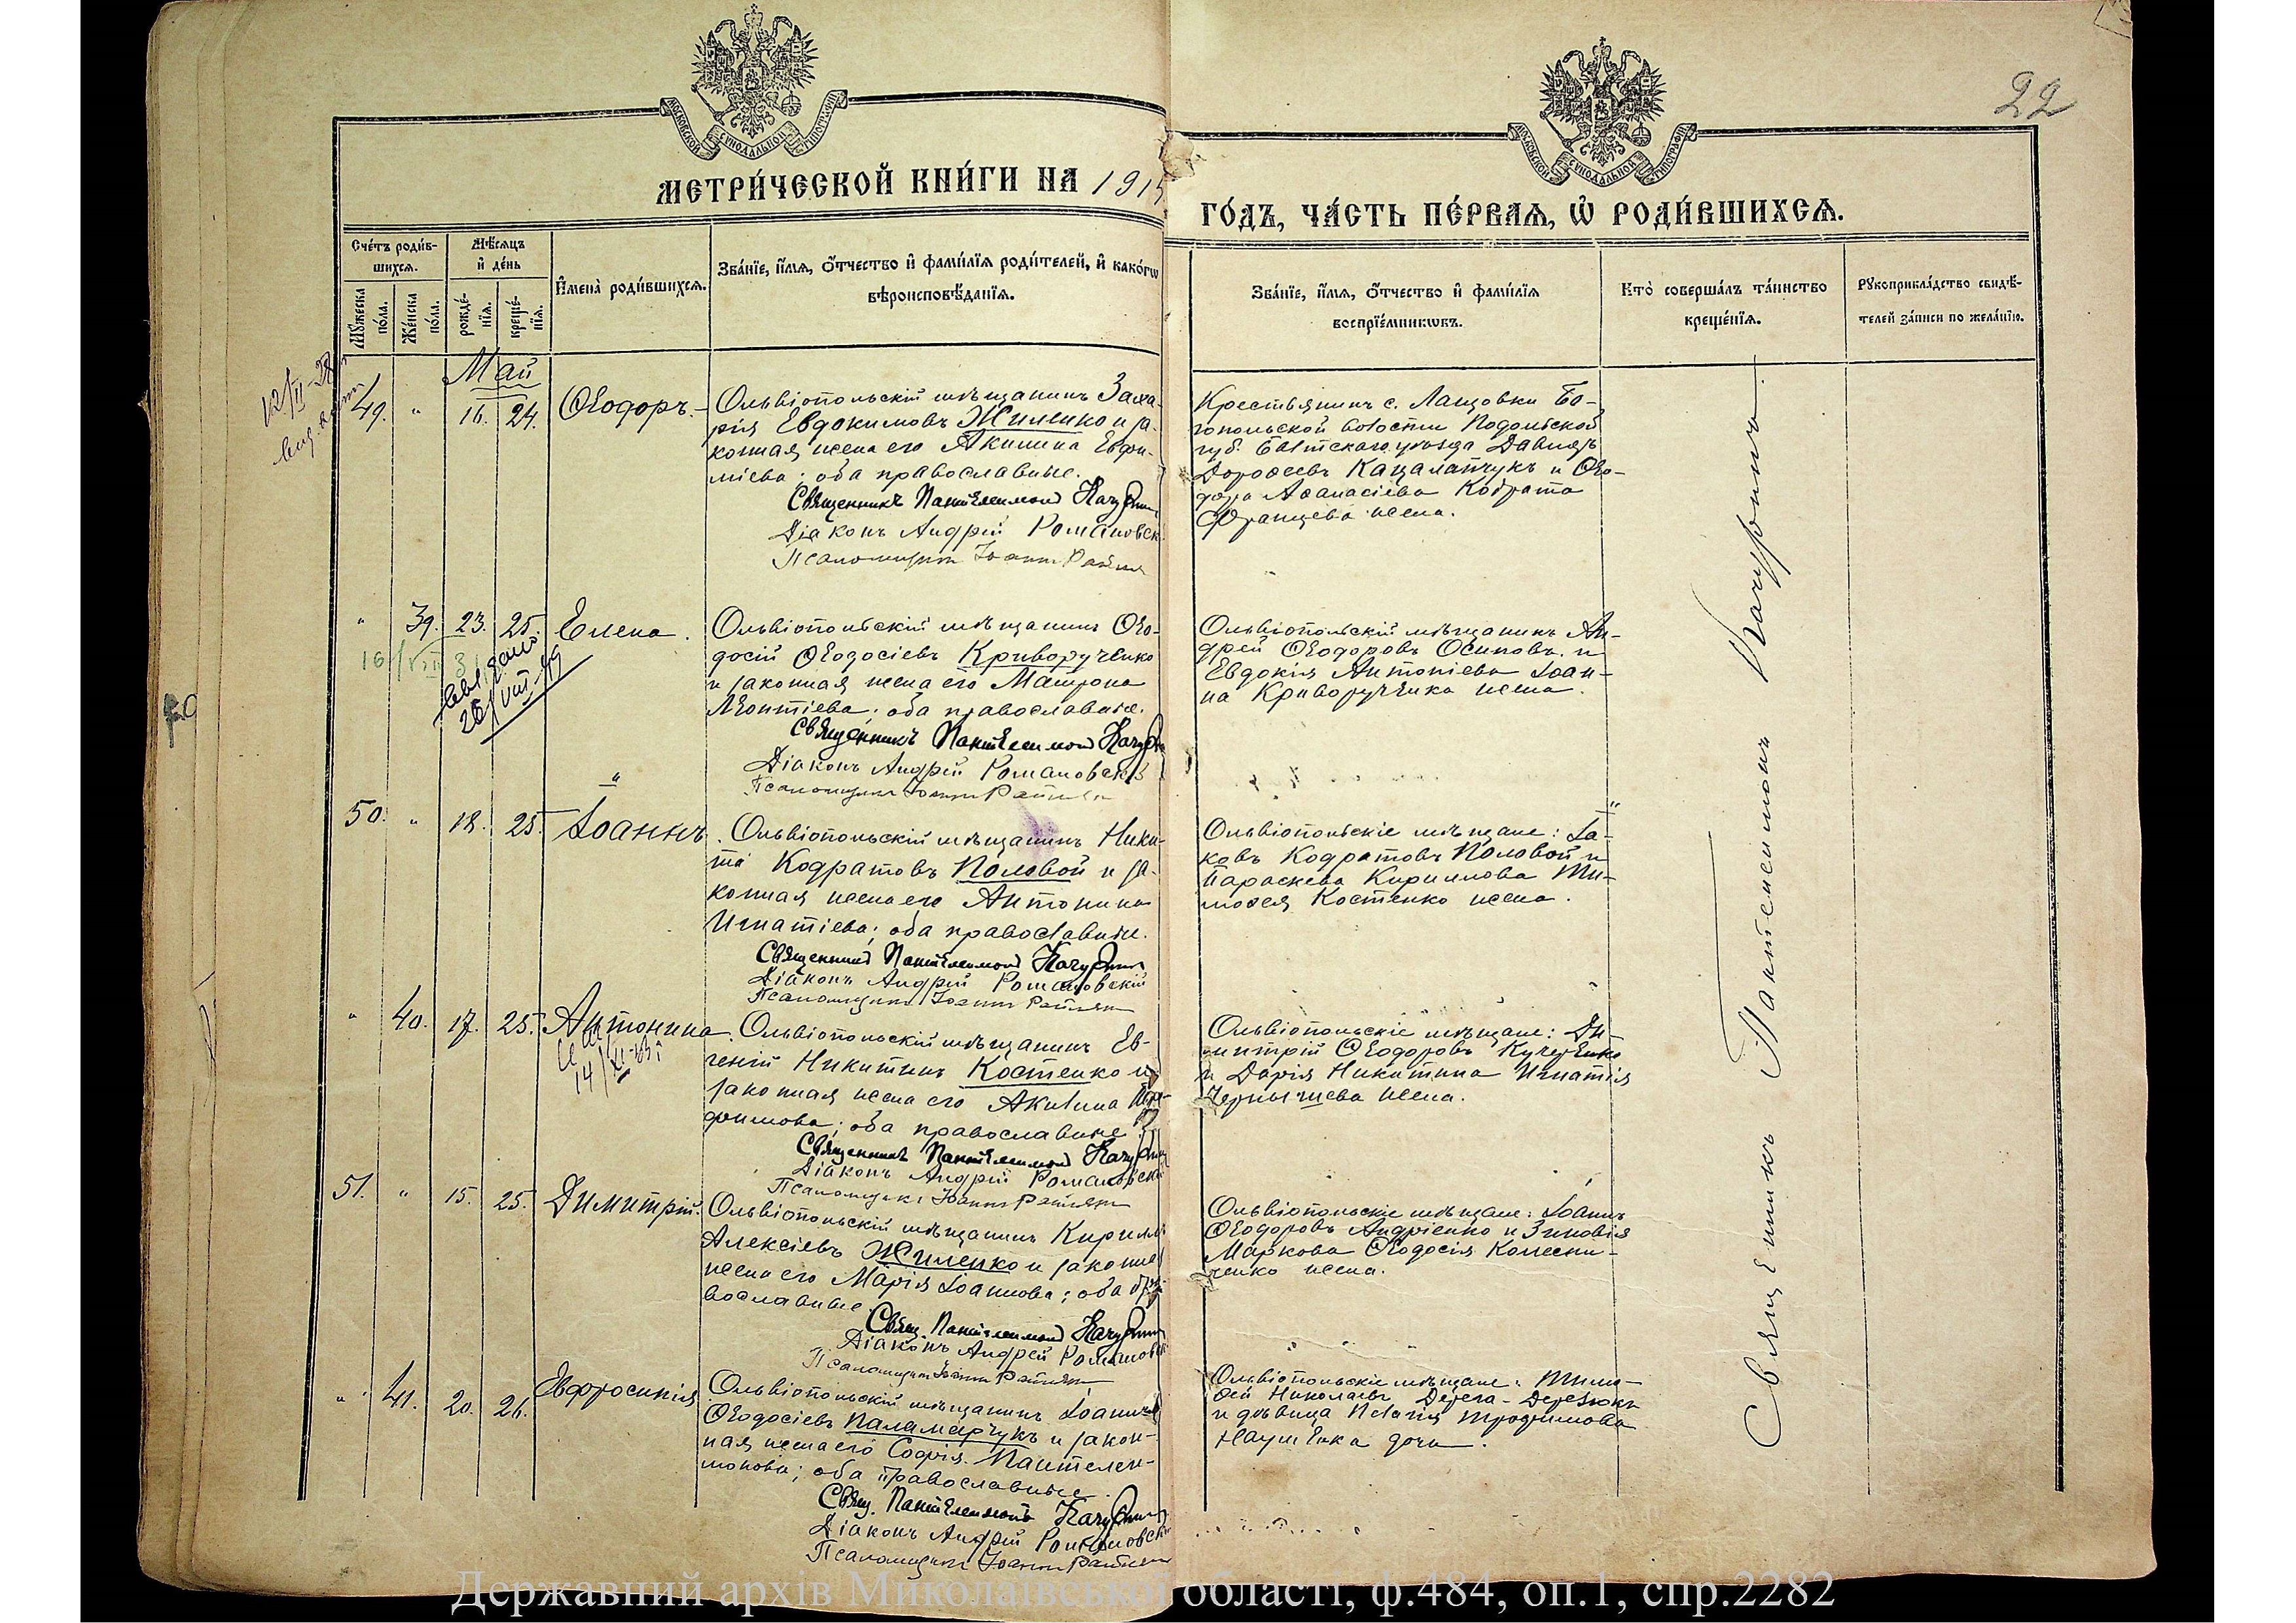 22
МЕТРИ́ЧЕСКОЙ КНИ́ГИ НА 1915
ГО́ДЪ, ЧА́СТЬ ПЕ́РВАЯ, Ѡ РОДИ́ВШИХСЯ.
МОСКОВСКОЙ СѴНОДАЛЬНОЙ ТИПОГРАФІИ
МОСКОВСКОЙ СѴНОДАЛЬНОЙ ТИПОГРАФІИ
Сче́тъ роди́в-
шихся.
Мѣ́сяцъ
и҆ де́нь
Му́жеска по́ла.
Же́нска по́ла.
рожде́-
нїя.
креще́-
нїя.
И҆мена̀ роди́вшихся.
Зва́нїе, и҆́мя, о҆́тчество и҆ фами́лїя роди́телей, и҆ како́гѡ
вѣроисповѣ́данїя.
Зва́нїе, и҆́мя, о҆́тчество и҆ фами́лїя
воспрїе́мникѡвъ.
Кто̀ соверша́лъ та́инство
креще́нїя.
Рукоприкла́дство свидѣ́-
телей за́писи по жела́нїю.
Май
49. " 16. 24. Ѳеодоръ.
Ольвіопольскій мѣщанинъ Заха-
рія Евдокимовъ Жиленко и за-
конная жена его Акилина Евфи-
міева; оба православные.
Священникъ Пантелеимонъ
Діаконъ Андрей Романовскій
Псаломщикъ Іоаннъ
Крестьянинъ с. Лащовки Бо-
гопольской волости Подольской
губ. Балтскаго уѣзда Давидъ
Дороѳеевъ Кацалапчукъ и Ѳео-
дора Аѳанасіева Кодрата
Францева жена.
" 39. 23. 25. Елена.
Ольвіопольскій мѣщанинъ Ѳео-
досій Ѳеодосіевъ Криворученко
и законная жена его Матрона
Леонтіева; оба православные.
Священникъ Пантелеимонъ
Діаконъ Андрей Романовскій
Псаломщикъ Іоаннъ
Ольвіопольскій мѣщанинъ Ан-
дрей Ѳеодоровъ Осиповъ и
Евдокія Антоніева Іоан-
на Криворученка жена.
50. " 18. 25. Іоаннъ.
Ольвіопольскій мѣщанинъ Ники-
та Кодратовъ Половой и за-
конная жена его Антонина
Игнатіева; оба православные.
Священникъ Пантелеимонъ
Діаконъ Андрей Романовскій
Псаломщикъ Іоаннъ
Ольвіопольскіе мѣщане: Іа-
ковъ Кодратовъ Половой и
Параскева Кириллова Ти-
моѳея Костенко жена.
" 40. 17. 25. Антонина.
Ольвіопольскій мѣщанинъ Ев-
геній Никитинъ Костенко и
законная жена его Акилина
фимова; оба православные
Священникъ Пантелеимонъ
Діаконъ Андрей Романовскій
Псаломщикъ Іоаннъ
Ольвіопольскіе мѣщане: Ди-
митрій Ѳеодоровъ Кучеренко
и Дарія Никитина Игнатія
Чернышева жена.
51. " 15. 25. Димитрій.
Ольвіопольскій мѣщанинъ Кириллъ
Алексіевъ Жиленко и законная
жена его Марія Іоаннова; оба пра-
вославные.
Свящ. Пантелеимонъ
Діаконъ Андрей Романовскій
Псаломщикъ Іоаннъ
Ольвіопольскіе мѣщане: Іоаннъ
Ѳеодоровъ Андріенко и Зиновія
Маркова Ѳеодосія Колесни-
ченко жена.
" 41. 20. 26. Евфросинія
Ольвіопольскій мѣщанинъ Іоаннъ
Ѳеодосіевъ Паламарчукъ и закон-
ная жена его Софія Пантелеи-
монова; оба православные.
Свящ. Пантелеимонъ
Діаконъ Андрей Романовскій
Псаломщикъ Іоаннъ
Ольвіопольскіе мѣщане: Тимо-
ѳей Николаевъ
и дѣвица Пелагія Трофимова
Науменка дочь.
Священникъ Пантелеимонъ
Державний архів Миколаївської області, ф.484, оп.1, спр.2282